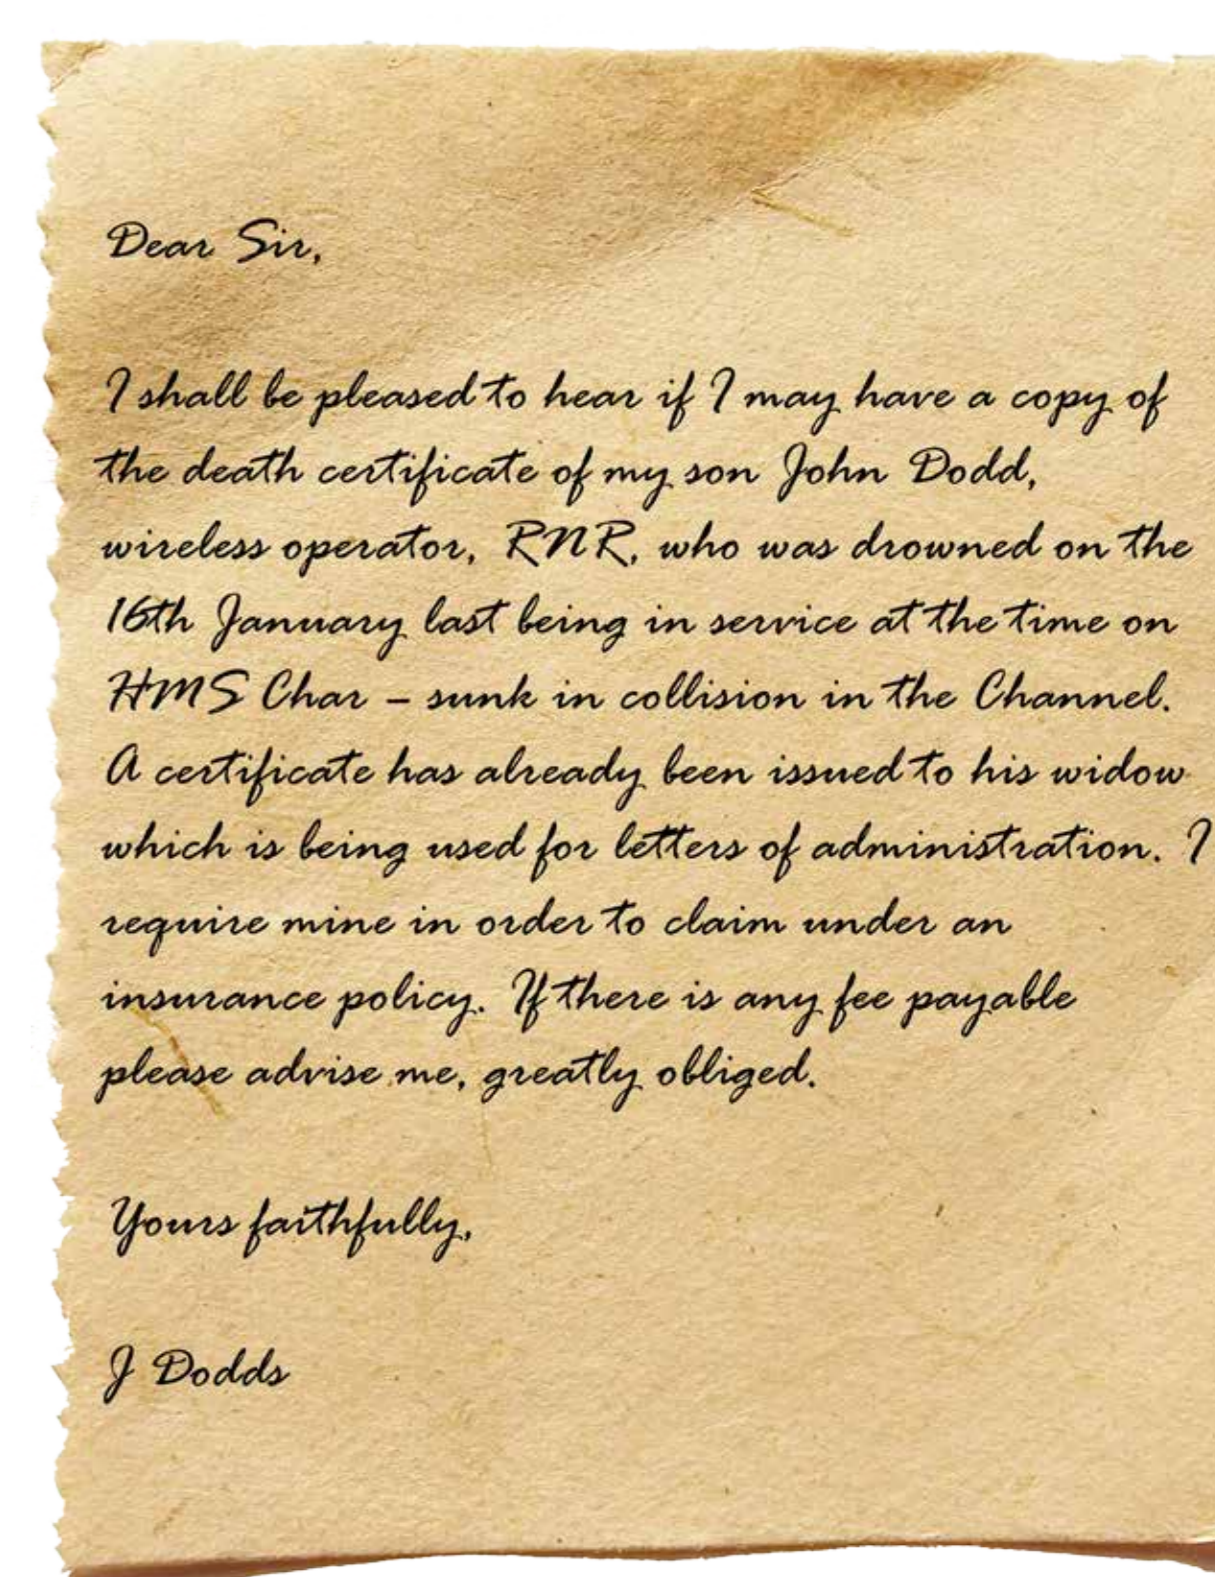 Dear Sir,
I shall be pleased to hear if I may have a copy of
the death certificate of my son John Dodd,
wireless operator, RNR, who was drowned on the
16th January last being in service at the time on
HMS Char – sunk in collision in the Channel.
A certificate has already been issued to his widow
which is being used for letters of administration. I
require mine in order to claim under an
insurance policy. If there is any fee payable
please advise me, greatly obliged.
Yours faithfully,
J Dodds